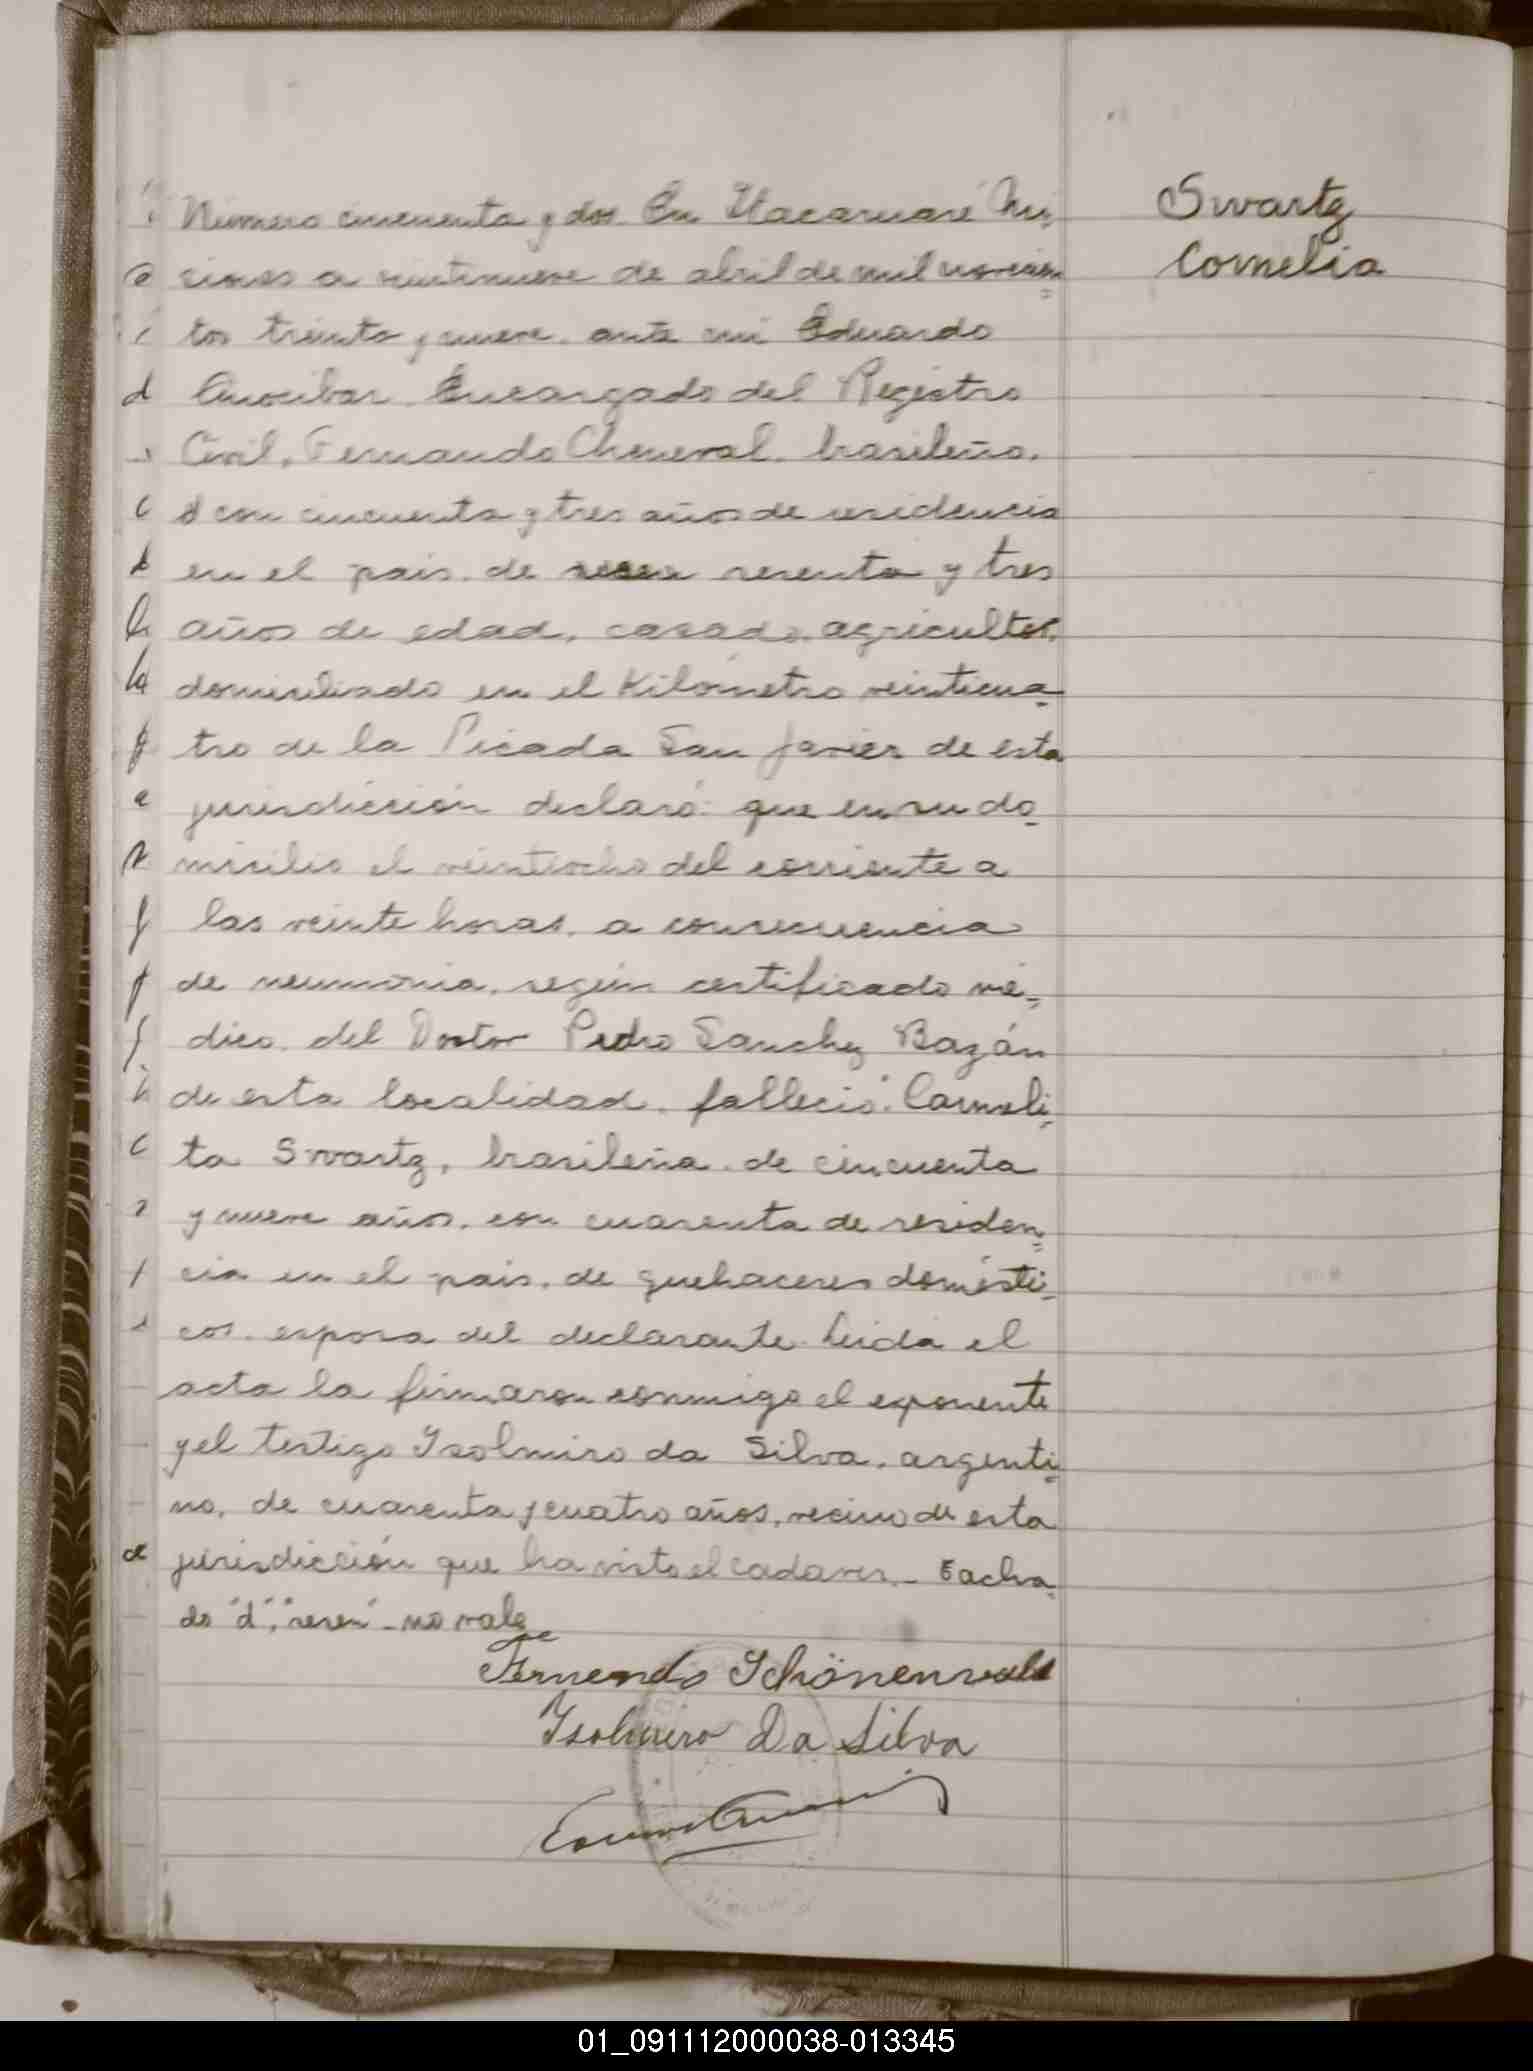 Swartz
Cornelia
Número cincuenta y dos En Itacaruaré Mi-
siones a veintinueve de abril de mil novecien=
tos treinta y nueve. ante mi Eduardo
Encargado del Registro
Civil, Fernando Cheneval. brasileño.
d con cincuenta y tres años de residencia
en el pais. de sesen sesenta y tres
años de edad, casado, agricultor,
domiciliado en el Kilómetro veinticua-
tro de la Picada San Javier de esta
jurisdicción declaró: que en su do-
micilio el veintiocho del corriente a
las veinte horas. a consecuencia
de neumonia, según certificado mé-
dico. del Doctor Pedro Sanchez Bazán
de esta localidad. falleció: Carmeli-
ta Swartz, brasileña. de cincuenta
y nueve años. con cuarenta de residen=
cia en el pais. de quehaceres domésti-
cos. esposa del declarante. Leida el
acta la firmaron conmigo el exponente
y el testigo Isolmiro da Silva. argenti-
no, de cuarenta y cuatro años, vecino de esta
jurisdicción que ha visto el cadaver.- Tacha-
do "d", "sesen" - no vale
Fernando Schönenwald
Isolmiro Da Silva
01_091112000038-013345